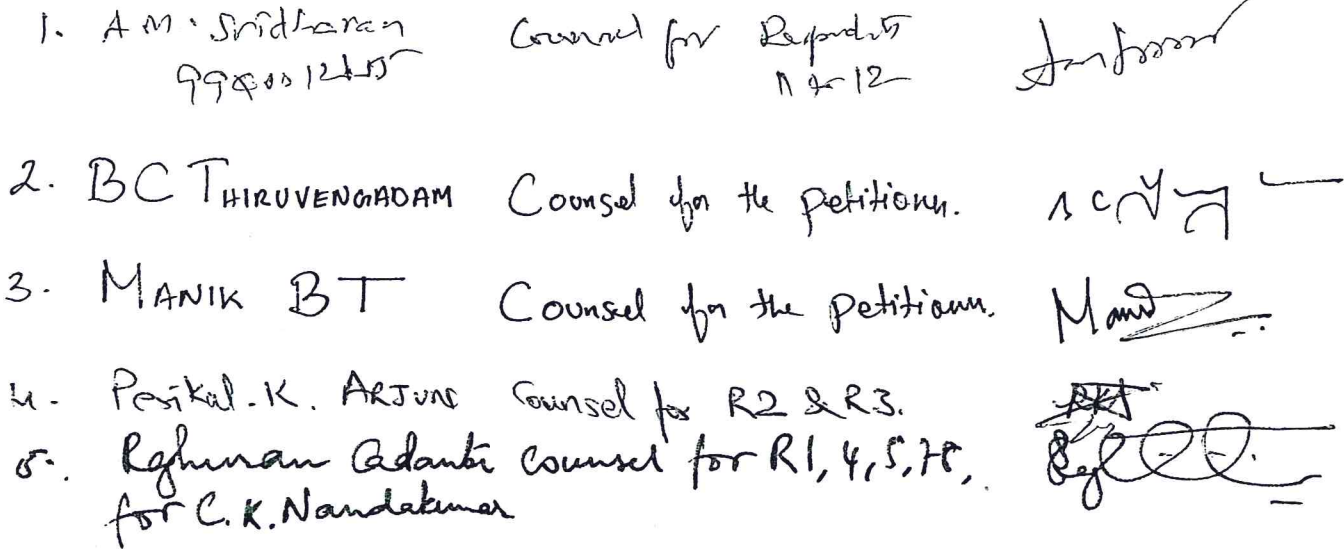 1. A M. Sridharan Counsel for Respondents
11 to 12
2. BC THIRUVENGADAM Counsel for the petitioner.
3. MANIK BT Counsel for the petitioner.
4. Perikal. K. ARJUN Counsel for R2 & R3.
5. Counsel for R1, 4, 5,
for C. K. Nandakumar